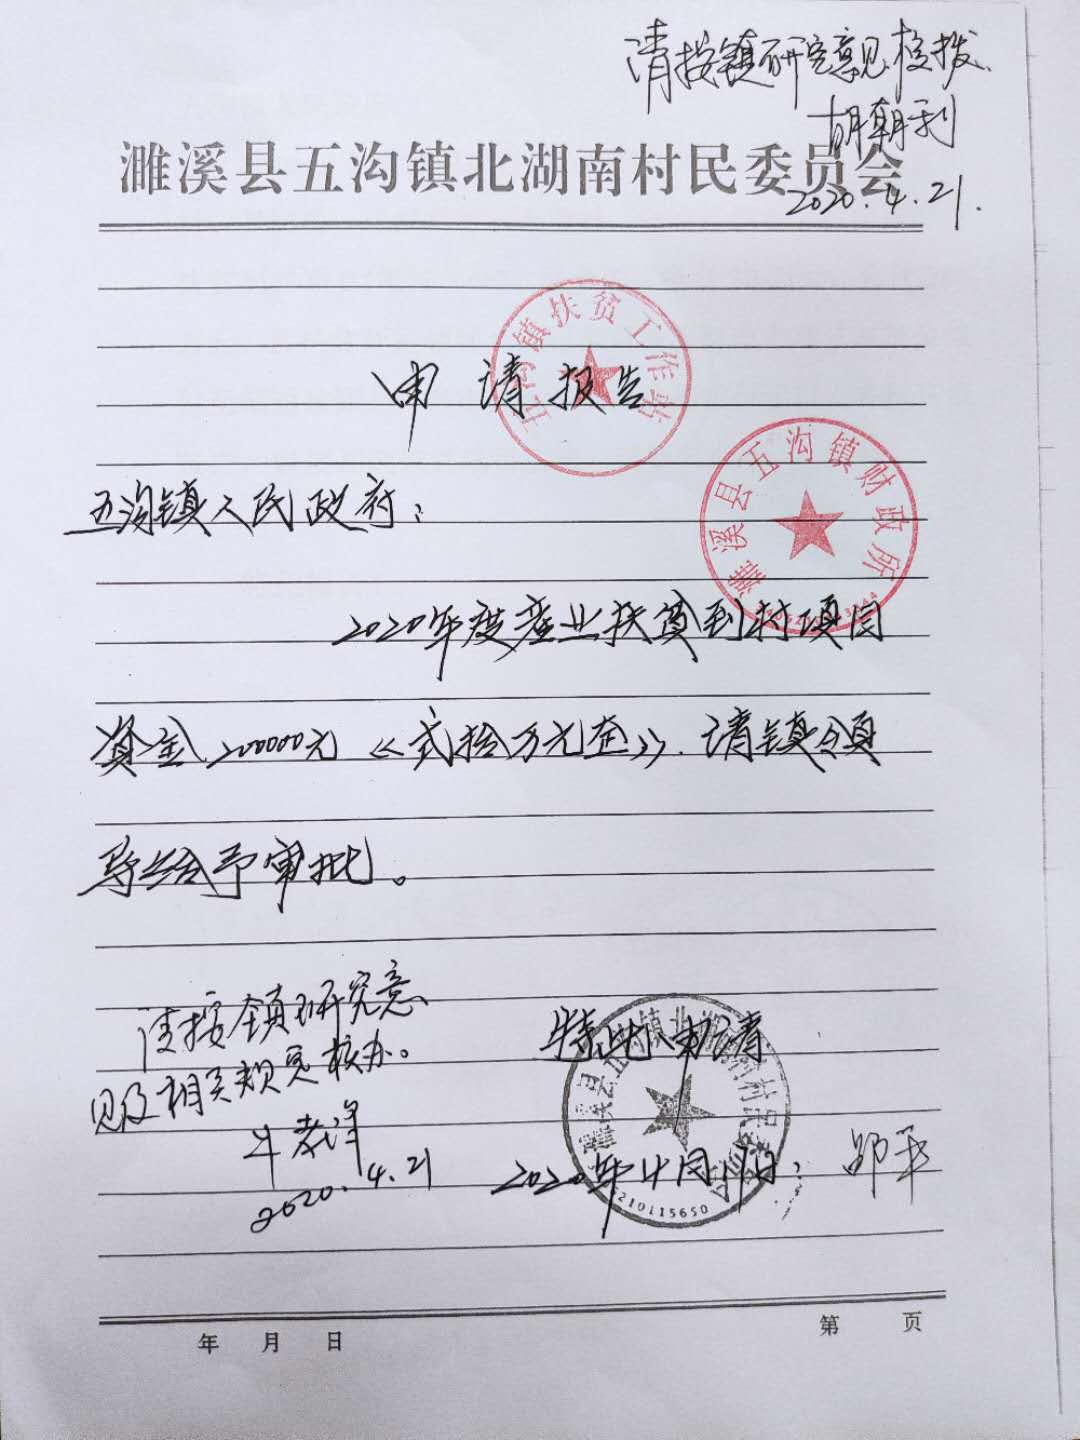 请按镇研究意见核拨.
胡朝利
2020.4.21.
濉溪县五沟镇北湖南村民委员会
五沟镇扶贫工作站
申请报告
濉溪县五沟镇财政所
五沟镇人民政府:
2020年度产业扶贫到村项目
资金200000元《贰拾万元整》.请镇领
导给予审批。
请按镇研究意
见及相关规定核办。
2020.4.21
特此申请
濉溪县五沟镇北湖南村民委员会
210115650
2020年4月
邹平
年 月 日
第 页